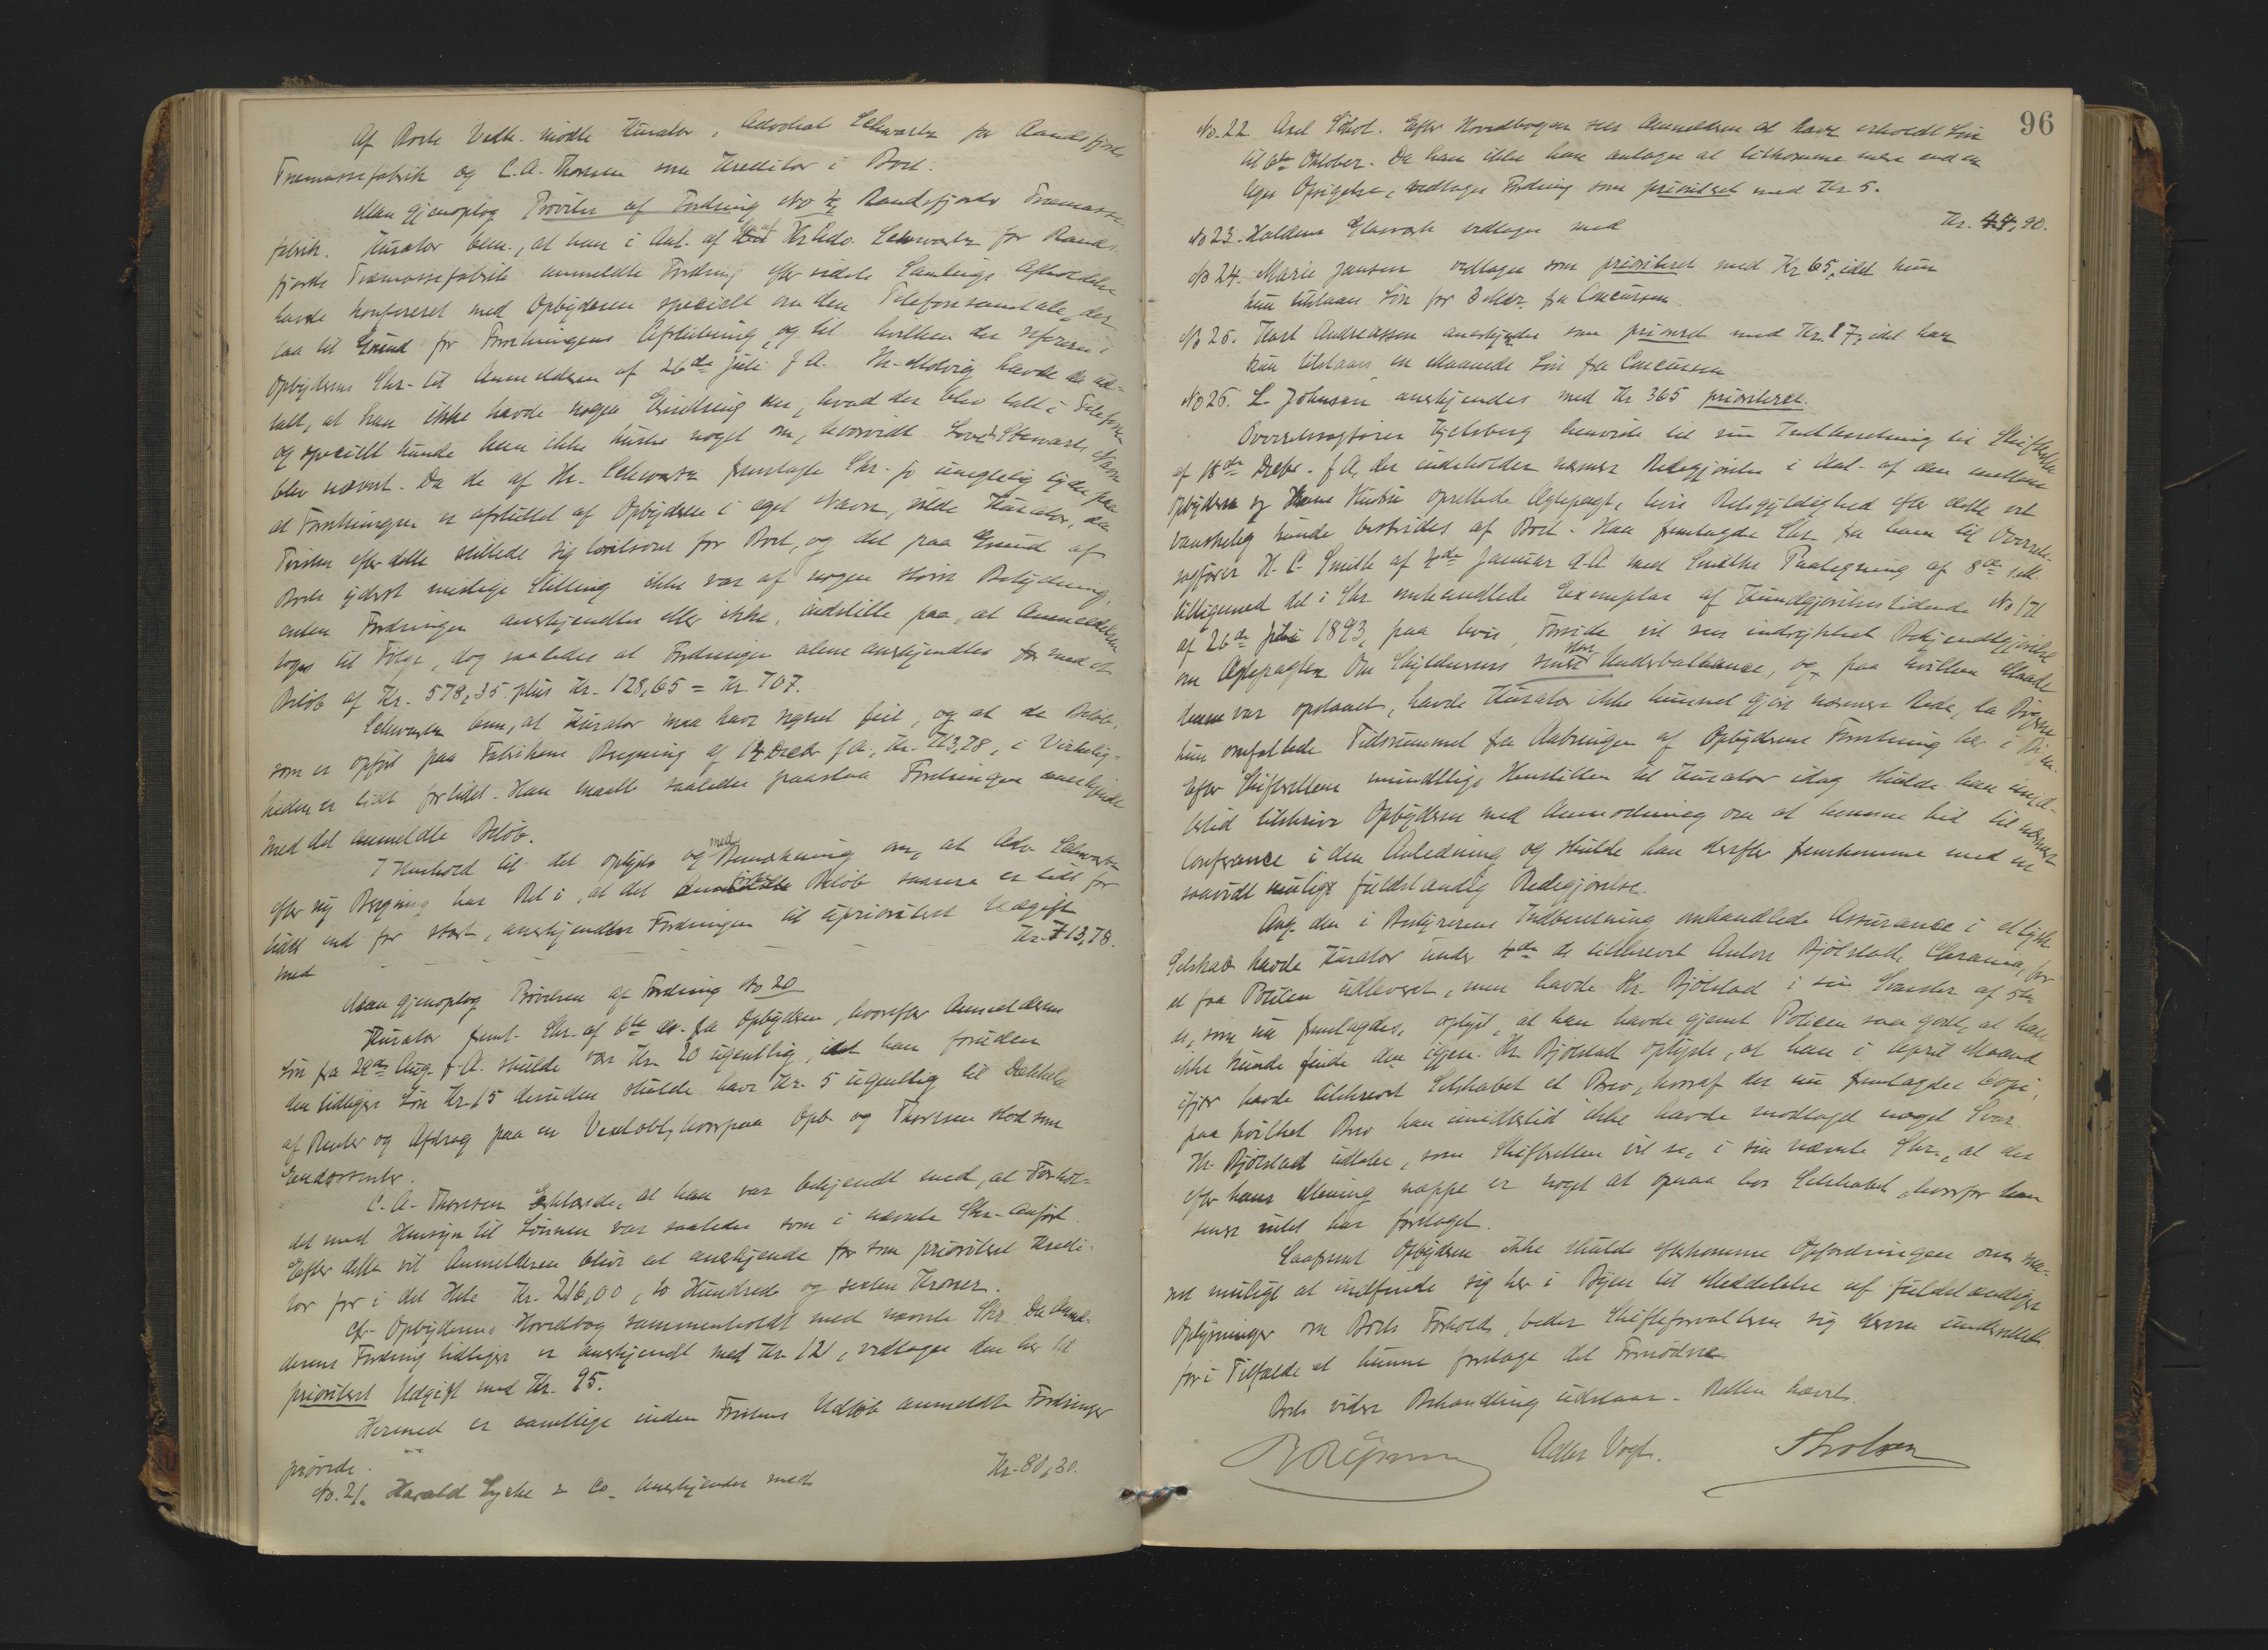 Af Boets Vedk. mødte Kurator, Advokat Schwartz for Randsfjords
Træmassefabrik og C.A. Thoresen som Kreditor i Boet.
Man gjenoptog Prøvelse af Fordring No Randsfjords Træmasse-
fabrik. Kurator bem., at han i Anl. af Hr Adv. Schwartz for Rands-
fjords Træmassefabrik anmeldte Fordring efter sidste Samlings Afholdelse
havde konfereret med Opbyderen specielt om den Telefonsamtale, der
laa til Grund for Forretningens Afslutning, og til hvilken der refereres i
Opbyderens Skr. til Anmelderen af 26de Juli f A. Hr. havde da ud-
talt, at han ikke havde nogen Erindring om, hvad der blev talt i Telefonen
og specielt kunde han ikke huske noget om, hvorvidt Stewarts Navn
blev nævnt. Da de af Hr. Schwartz fremlagte Skr. jo unegtelig tyder paa
at Forretningen er afsluttet af Opbyderen i eget Navn, vilde Kurator, da
Tvisten efter dette stillede sig tvilsomt for Boet, og det paa Grund af
Boets yderst mislige Stilling ikke var af nogen større Betydning,
enten Fordringen anerkjendtes eller ikke, indstille paa, at Anmeldelsen
toges til Følge, dog saaledes at Fordringen alene anerkjendtes for med et
Beløb af Kr. 578,35 plus Kr. 128,65 = Kr. 707.
Schwartz bem., at Kurator maa have regnet feil, og at de Beløb,
som er opført paa Fabrikens Regning af 14 Decbr f A., Kr. 713,78, i Virkelig-
heden er lidt for lidet. Han maatte saaledes paastaa Fordringen anerkjendt
med det anmeldte Beløb.
I Henhold til det oplyste og med Bemærkning om, at Adv. Schwartz
efter ny Beregning har Ret i, at det Beløb snarere er lidt for
lidet end for stort, anerkjendes Fordringen til uprioriteret Udgift
med — — — Kr. 713,78.
Man gjenoptog Prøvelsen af Fordring No 20
Kurator freml. Skr. af 6te ds. fra Opbyderen, hvorefter Anmelderens
Løn fra 22de Aug. f. A. skulde være Kr. 20 ugentlig, idet han foruden
den tidligere Løn Kr. 15 desuden skulde have Kr. 5 ugentlig til Dækkelse
af Renter og Afdrag paa en Vexelobl., hvorpaa Opb. og Thoresen stod som
Endossenter.
C. A. Thoresen erklærede, at han var bekjendt med, at Forhol-
det med Hensyn til Lønnen var saaledes som i nævnte Skr. anført.
Efter dette vil Anmelderen blive at anerkjende for som prioriteret Kredi-
tor for i det Hele Kr. 216,00, to Hundrede og sexten Kroner.
cfr. Opbyderens Hovedbog sammenholdt med nævnte Skr. Da Anmel-
derens Fordring tidligere er anerkjendt med Kr. 121, vedtages den her til
prioriteret Udgift med Kr. 95.
Hermed er samtlige inden Fristens Udløb anmeldte Fordringer
prøvede.
No. 21. Harald Lyche & Co. Anerkjendes med Kr. 80,30.
96
No. 22 Axel Efter Hovedbogen sees Anmelderen at have erholdt Løn
til 6te Oktober. Da han ikke kan antages at tilkomme mere end en
Uges Opsigelse, vedtages Fordring som prioriteret med Kr 5.
No 23. Haldens Glasværk vedtages med Kr. 44,90.
No 24. Marie Jansen vedtages som prioriteret med Kr 65, idet hun
kun tilstaaes Løn for 3 Mdr. fra Concursen.
No 25. Karl Andreassen anerkjendes som prioriteret med Kr. 17, idet han
kun tilstaaes en Maaneds Løn fra Concursen.
No 26. L. Johnsen anerkjendes med Kr 365 prioriteret.
Overretssagfører Kjelsberg henviste til sin Indberetning til Skifteretten
af 18de Decbr. f A, der indeholder nærmere Redegjørelse i Anl. af den mellem
Opbyderen og Hans Hustru oprettede Ægtepagt, hvis Retsgyldighed efter dette vel
vanskelig kunde bestrides af Boet. Han fremlagde Skr. fra ham til Overrets-
sagfører H. C. Smith af 4de Januar d. A. med Smiths Paategning af 8de s. M.
tilligemed det i Skr. omhandlede Exemplar af Kundgjørelsestidende No 171
af 26de Juli 1893, paa hvis Forside vil sees indrykket Bekjendtgjørelse
om Ægtepagten. Om Skyldnerens store Underballance, og paa hvilken Maade
denne var opstaaet, havde Kurator ikke kunnet gjøre nærmere Rede, da
kun omfattede Tidsrummet fra Aabningen af Opbyderens Forretning her i Byen.
Efter Skifterettens mundtlige Henstillen til Kurator idag skulde han imid-
lertid tilskrive Opbyderen med Anmodning om at komme hid til nærmere
Conferance i den Anledning og skulde han derefter fremkomme med en
saavidt mulig fuldstændig Redegjørelse.
Ang. den i Bestyrerens Indberetning omhandlede Assurance i et tysk
Selskab havde Kurator under 4de ds tilskrevet Anton Bjølstad, Chrania, for
at faa Policen udleveret, men havde Hr. Bjølstad i sin Svarskr. af 5te
ds, som nu fremlagdes, oplyst, at han havde gjemt Policen saa godt, at han
ikke kunde finde den igjen. Hr. Bjølstad oplyste, at han i April Maaned
ifjor havde tilskrevet Selskabet et Brev, hvoraf der nu fremlagdes Copi,
paa hvilket Brev han imidlertid ikke havde modtaget noget Svar.
Hr. Bjølstad udtaler, som Skifteretten vil se, i sin nævnte Skr., at der
efter hans Mening neppe er noget at opnaa hos Selskabet, hvorfor han
senere intet har foretaget.
Saafremt Opbyderen ikke skulde efterkomme Opfordringen om sna-
rest muligt at indfinde sig her i Byen til Meddelelse af fuldstændigere
Oplysninger om Boets Forhold, beder Skifteforvalteren sig derom underrettet
for i Tilfælde at kunne foretage det Fornødne.
Boets videre Behandling udstaar. Retten hævet.
Adler Vogt.